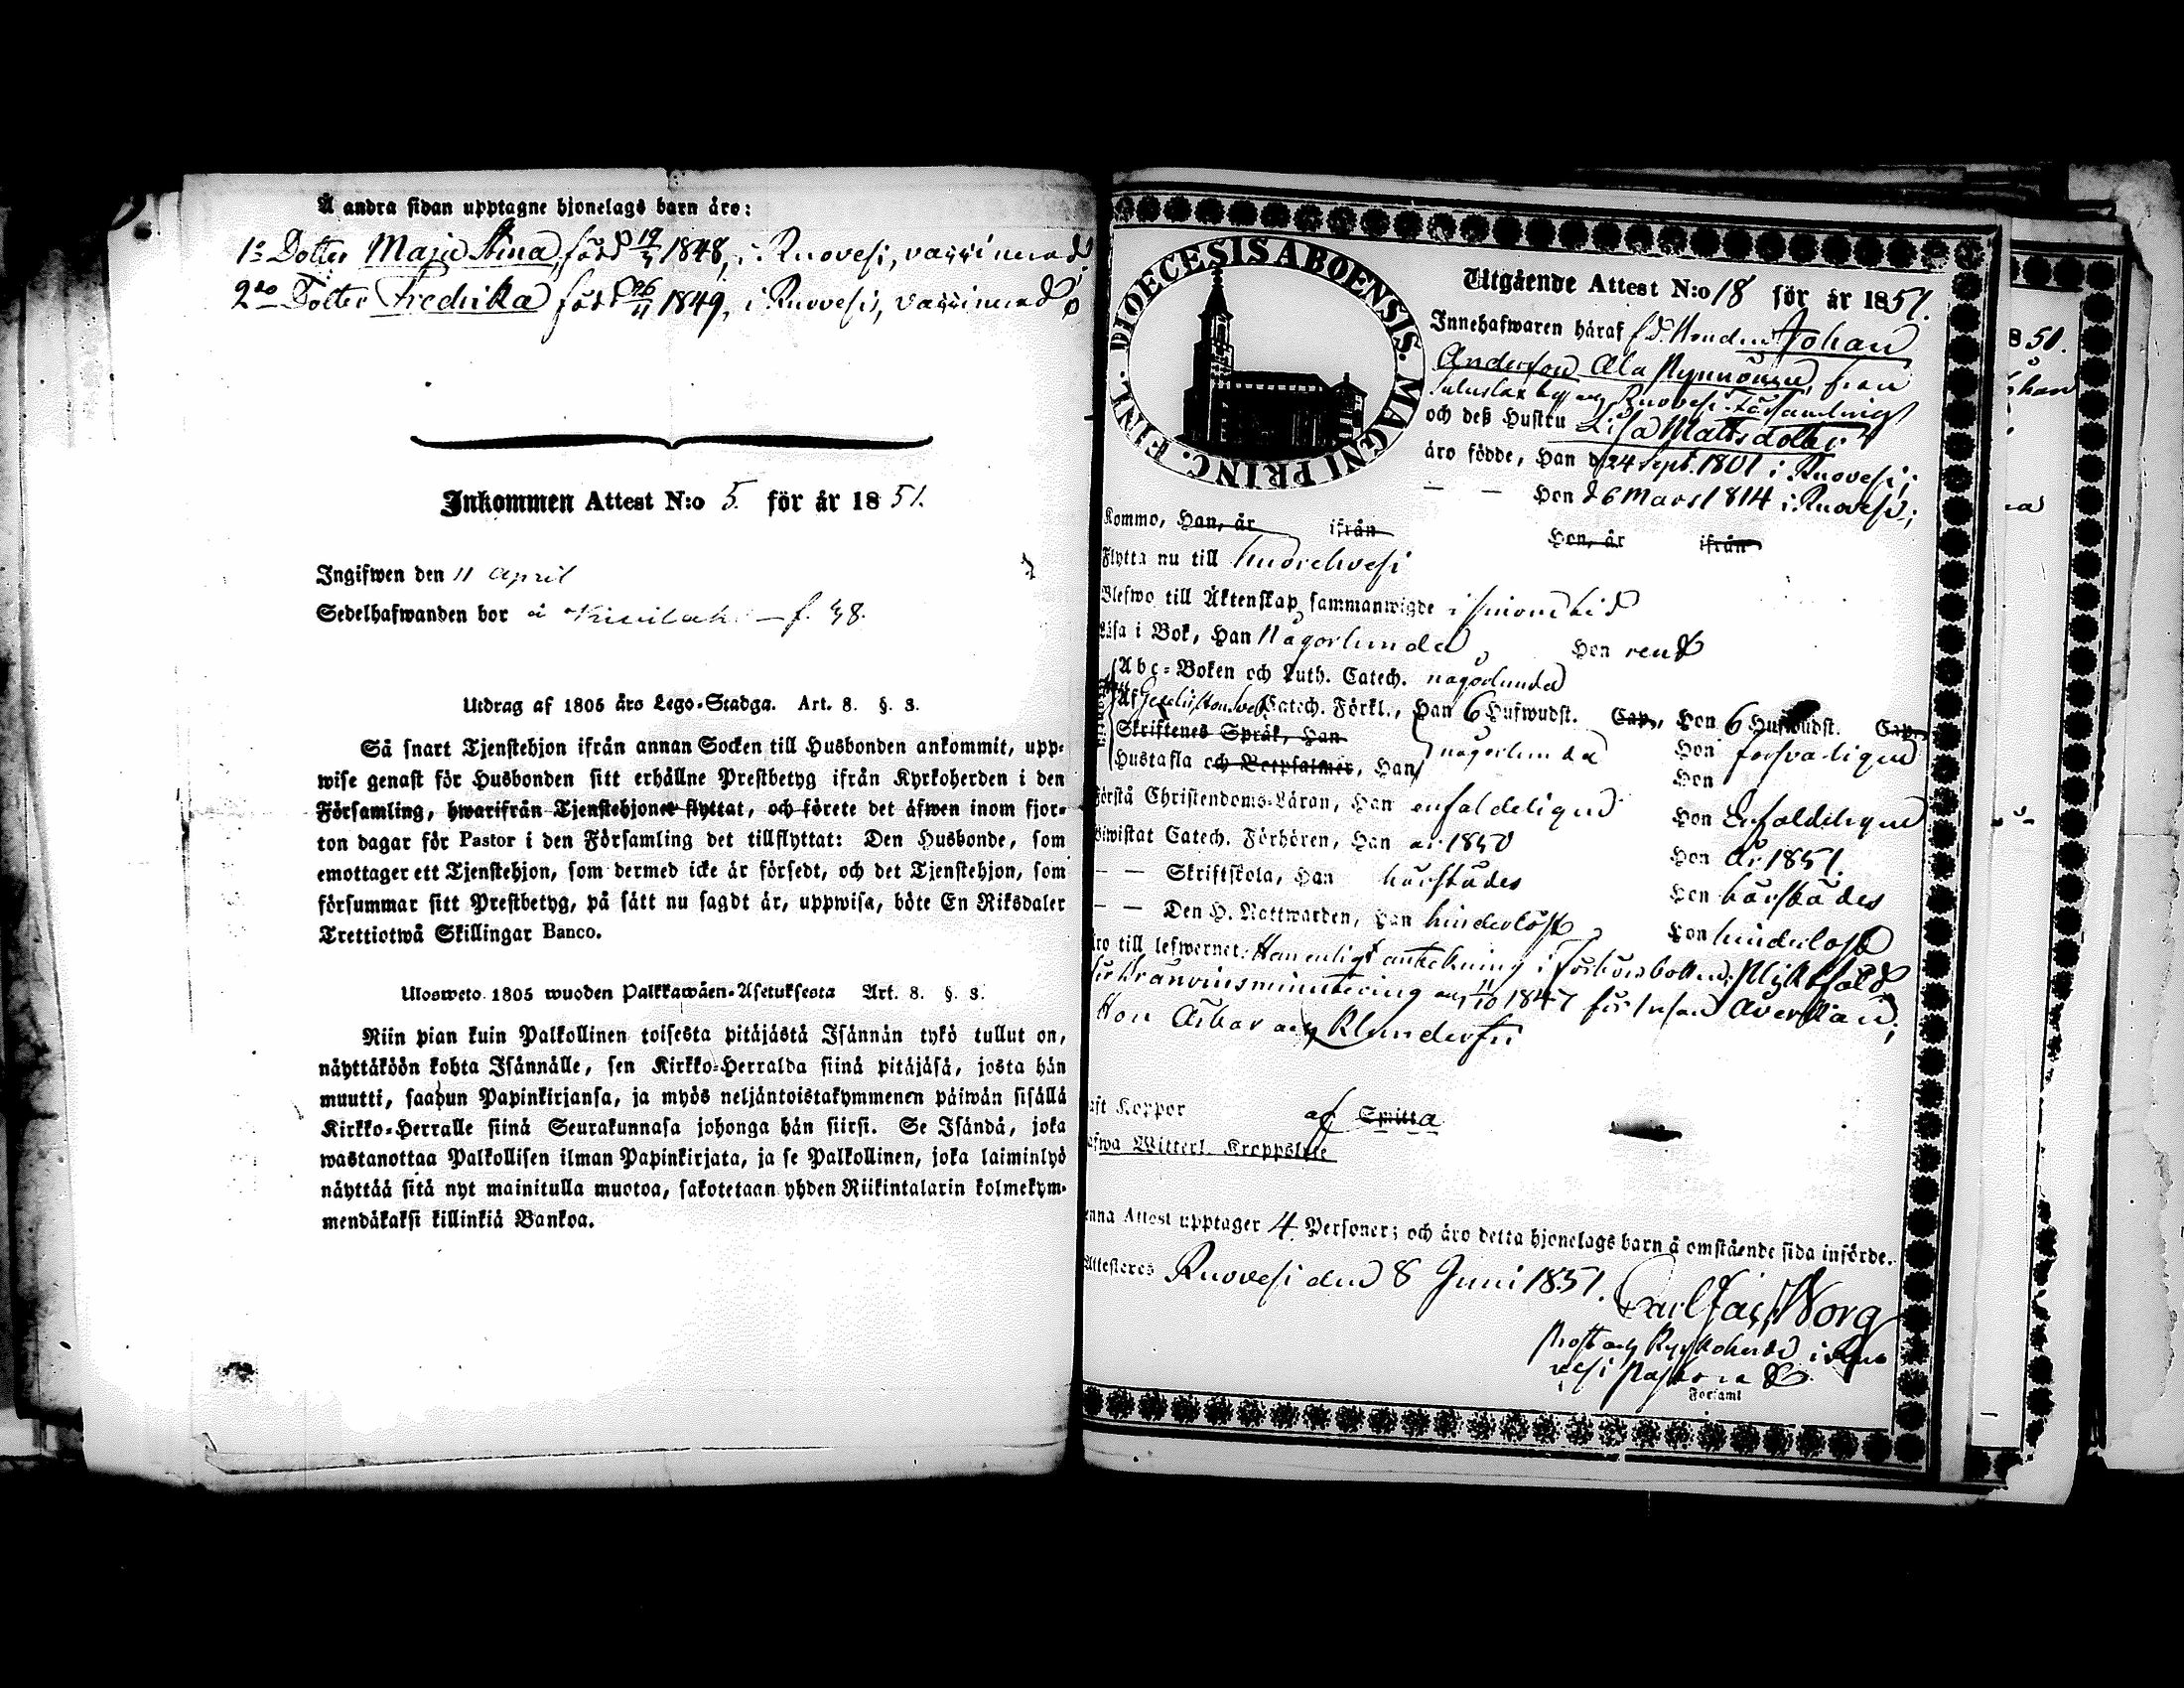 Å andra sidan upptagne hjonelags barn äro:
1:o Dotter Maja Stina, född 19/3 1848, i Ruovesi, vaccinerad
2:do Dotter Fredrika född 26/11 1849, i Ruovesi, vaccinerad
Inkommen Attest N:o 5. för år 1851.
Ingifwen den 11 April
Sedelhafwanden bor å f. 48.
Utdrag af 1805 års Lego-Stadga. Art. 8. §. 3.
Så snart Tjenstehjon ifrån annan Socken till Husbonden ankommit, upp-
wise genast för Husbonden sitt erhållne Prestbetyg ifrån Kyrkoherden i den
Församling, hwarifrån Tjenstehjonet flyttat, och förete det äfwen inom fjor-
ton dagar för Pastor i den Församling det tillflyttat: Den Husbonde, som
emottager ett Tjenstehjon, som dermed icke är försedt, och det Tjenstehjon, som
försummar sitt Prestbetyg, på sätt nu sagdt är, uppwisa, böte En Riksdaler
Trettiotwå Skillingar Banco.
Ulosweto 1805 wuoden Palkkawäen-Asetuksesta Art. 8. §. 3.
Niin pian kuin Palkollinen toisesta pitäjästä Isännän tykö tullut on,
näyttäköön kohta Isännälle, sen Kirkko-Herralda siinä pitäjäsä, josta hän
muutti, saadun Papinkirjansa, ja myös neljäntoistakymmenen päiwän sisällä
Kirkko-Herralle siinä Seurakunnasa johonga hän siirsi. Se Isändä, joka
wastanottaa Palkollisen ilman Papinkirjata, ja se Palkollinen, joka laiminlyö
näyttää sitä nyt mainitulla muotoa, sakotetaan yhden Riikintalarin kolmekym-
mendäkaksi killinkiä Bankoa.
DIOECESIS ABOENSIS. MAGNI PRINC. FINL.
Utgående Attest N:o 18 för år 1851.
Innehafwaren häraf f.d. Johan
Andersson Ala från
by Ruovesi Församling
och deß Hustru Lisa Mattsdotter
äro födde, Han d 24 Sept. 1801 i Ruovesi;
— — Hon d 6 Mars 1814 i Ruovesi;
Kommo, Han, år ifrån Hon, år ifrån
Flytta nu till Kuorehvesi
Blefwo till Äktenskap sammanwigde i sinom tid
Läsa i Bok, Han någorlunda, Hon rent
Abc-Boken och Luth. Catech. någorlunda
Af Catech. Förkl., Han 6 Hufwudst. Cap., Hon 6 Hufwudst. Cap.
Skriftenes Språk, Han någorlunda Hon försvarligen
Hustafla och Botpsalmer, Han Hon
Förstå Christendoms-Läran, Han enfaldeligen Hon Enfaldeligen
Biwistat Catech. Förhören, Han år 1850 Hon år 1851.
— — Skriftskola, Han härstädes Hon härstädes
— — Den H. Nattwarden, Han hinderlöst, Hon hinderlöst
Äro till lefwernet: Han enligt anteckning i Förhörsboken, Pliktfäld
för Bränvinsminutering 11/10 1847 för
Hon Ärbar och
haft Koppor af Smitta
hafwa Witterl. Kroppslyte
Denna Attest upptager 4 Personer; och äro detta hjonelags barn å omstående sida införde.
Attesteres Ruovesi den 8 Juni 1851.
Prost och Kyrkoherde i Ruo
vesi Pastorat
Församl